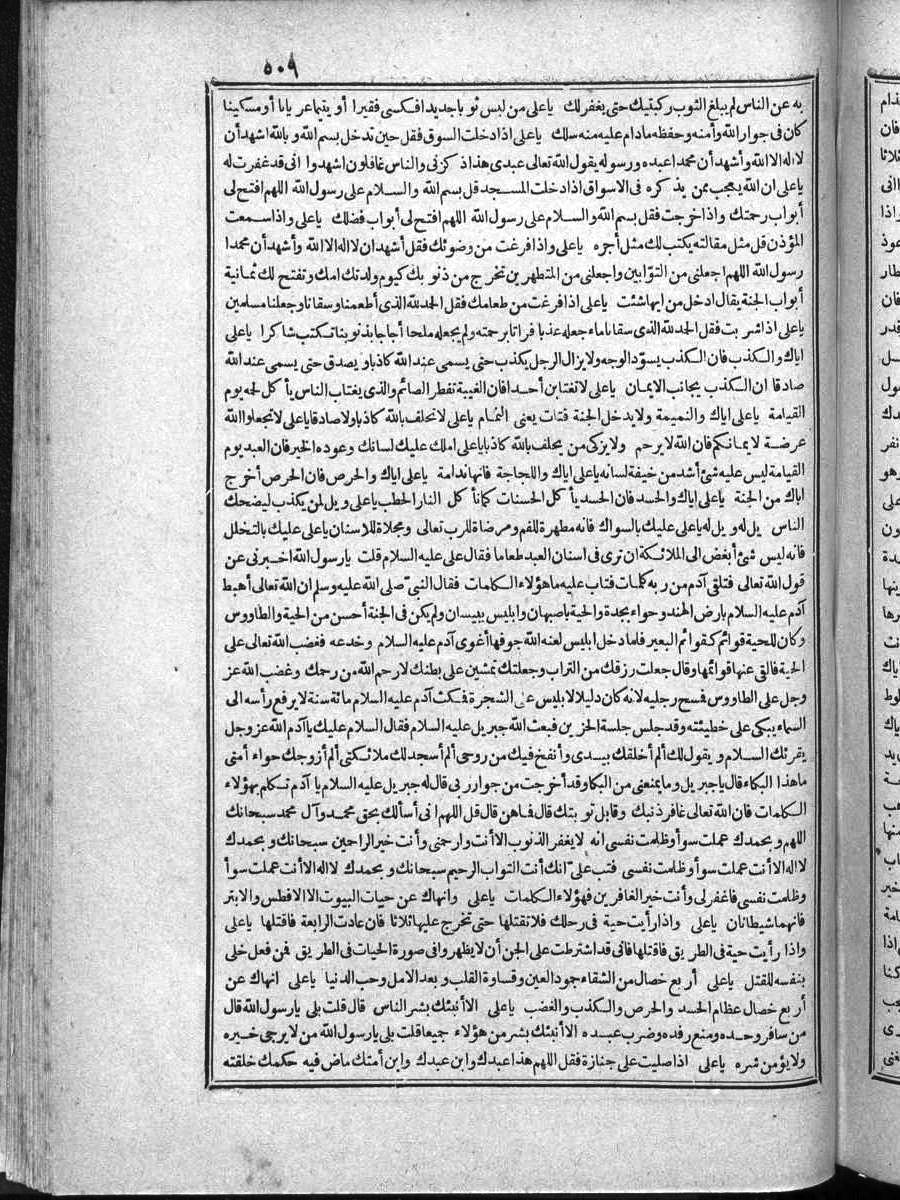 ٥٠٩
به عن الناس لم يبلغ الثوب ركبتيك حتى يغفر لك ياعلى من لبس ثوبا جديدا فكسى فقيرا أو يتيما عريانا أو مسكينا
كان فى جوار الله وأمنه وحفظه مادام عليه منه سلك ياعلى اذا دخلت السوق فقل حين تدخل بسم الله وبالله اشهد أن
لااله الا الله وأشهد أن محمدا عبده ورسوله يقول الله تعالى عبدى هذا ذكرنى والناس غافلون اشهدوا انى قد غفرت له
ياعلى ان الله يعجب ممن يذكره فى الاسواق اذا دخلت المسجد قل بسم الله والسلام على رسول الله اللهم افتح لى
أبواب رحمتك واذا خرجت فقل بسم الله والسلام على رسول الله اللهم افتح لى أبواب فضلك ياعلى واذا سمعت
المؤذن قل مثل مقالته يكتب لك مثل أجره ياعلى واذا فرغت من وضوئك فقل أشهد ان لااله الا الله وأشهد أن محمدا
رسول الله اللهم اجعلنى من التوابين واجعلنى من المتطهرين تخرج من ذنوبك كيوم ولدتك امك وتفتح لك ثمانية
أبواب الجنة يقال ادخل من ايها شئت ياعلى اذا فرغت من طعامك فقل الحد لله الذى أطعمنا وسقانا وجعلنا مسلمين
ياعلى اذا شربت فقل الحد لله الذى سقانا ماء جعله عذبا فراتا برحمته ولم يجعله ملحا أجاجا بذنوبنا تكتب شاكرا ياعلى
اياك والكذب فان الكذب يسود الوجه ولا يزال الرجل يكذب حتى يسمى عند الله كاذبا ويصدق حتى يسمى عند الله
صادقا ان الكذب يجانب الايمان ياعلى لا تغتابن أحدا فان الغيبة تفطر الصائم والذى يغتاب الناس يأكل لحه يوم
القيامة ياعلى اياك والنميمة ولا يدخل الجنة فتات يعنى النمام ياعلى لا تحلف بالله كاذبا ولا صادقا ياعلى لا تجعلوا الله
عرضة لايمانكم فان الله لا يرحم ولا يزكى من يحلف بالله كاذبا ياعلى املك عليك لسانك وعوده الخير فان العبد يوم
القيامة ليس عليه شئ أشد من خيفة لسانه ياعلى اياك واللجاجة فانها ندامة ياعلى اياك والحرص فان الحرص أخرج
اباك من الجنة ياعلى اياك والحسد فان الحسد يأكل الحسنات كما تأكل النار الحطب ياعلى ويل لمن يكذب ليضحك
الناس ويل له ويل له ياعلى عليك بالسواك فانه مطهرة للفم ومرضاة للرب تعالى ومجلاة للاسنان ياعلى عليك بالتخلل
فانه ليس شئ أبغض الى الملائكة ان ترى فى اسنان العبد طعاما فقال على عليه السلام قلت يارسول الله اخبرنى عن
قول الله تعالى فتلقى آدم من ربه كلمات فتاب عليه ماهؤلاء الكلمات فقال النبى صلى الله عليه وسلم ان الله تعالى أهبط
آدم عليه السلام بارض الهند وحواء بجدة والحية باصبهان وابليس ببيسان ولم يكن فى الجنة أحسن من الحية والطاووس
وكان للحية قوائم كقوائم البعير فلما دخل ابليس لعنه الله جوفها أغوى آدم عليه السلام وخدعه فغضب الله تعالى على
الحية فالقى عنها قوائمها وقال جعلت رزقك من التراب وجعلتك تمشين على بطنك لا رحم الله من رحمك وغضب الله عز
وجل على الطاووس فمسح رجليه لانه كان دليلا لابليس على الشجرة فكث آدم عليه السلام مائة سنة لا يرفع رأسه الى
السماء يبكى على خطيئته وقد جلس جلسة الحزين فبعث الله جبريل عليه السلام فقال السلام عليك ياآدم الله عز وجل
يقرئك السلام ويقول لك ألم أخلقك بيدى وأنفخ فيك من روحى ألم أسجد لك ملائكتى ألم أزوجك حواء أمتى
ماهذا البكاء قال ياجبريل وما يمنعنى من البكا وقد أخرجت من جوار ربى قال له جبريل عليه السلام ياآدم تكلم بهؤلاء
الكلمات فان الله تعالى غافر ذنبك وقابل توبتك قال فاهن قال قل اللهم انى أسألك بحق محمد وآل محمد سبحانك
اللهم وبحمدك عملت سوأ وظلمت نفسى انه لا يغفر الذنوب الا أنت وارحمنى وأنت خير الراحمين سبحانك وبحمدك
لااله الا أنت عملت سوأ وظلمت نفسى فتب على انك أنت التواب الرحيم سبحانك وبحمدك لااله الا أنت عملت سوأ
وظلمت نفسى فاغفر لى وأنت خير الغافرين فهؤلاء الكلمات ياعلى وانهاك عن حيات البيوت الا الافطس والابتر
فانهما شيطانان ياعلى واذا رأيت حية فى رحلك فلا تقتلها حتى تخرج عليها ثلاثا فان عادت الرابعة فاقتلها ياعلى
واذا رأيت حية فى الطريق فاقتلها فانى قد اشترطت على الجن أن لا يظهروا فى صورة الحيات فى الطريق فمن فعل خلى
بنفسه للقتل ياعلى أربع خصال من الشقاء جمود العين وقساوة القلب وبعد الامل وحب الدنيا ياعلى انهاك عن
أربع خصال عظام الحسد والحرص والكذب والغضب ياعلى الا أنبئك بشر الناس قال قلت بلى يارسول الله قال
من سافر وحده ومنع رفده وضرب عبده الا أنبئك بشر من هؤلاء جميعا قلت بلى يارسول الله من لا يرجى خيره
ولا يؤمن شره ياعلى اذا صليت على جنازة فقل اللهم هذا عبدك وابن عبدك وابن أمتك ماض فيه حكمك خلقته